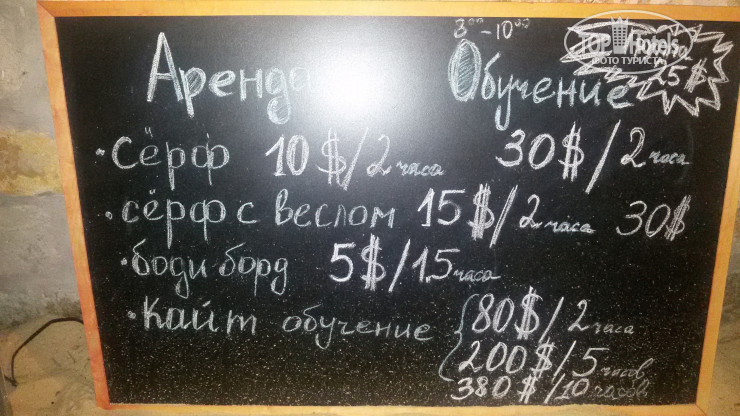 8⁰⁰ - 10⁰⁰
Аренда Обучение
25$
TOP Hotels
ФОТО ТУРИСТА
• Сёрф 10$/2 часа 30$/2 часа
• сёрф с веслом 15$/2 часа 30$
• боди борд 5$/1.5 часа
• Кайт обучение {80$/2 часа
{200$/5 часов
380$/10 часов